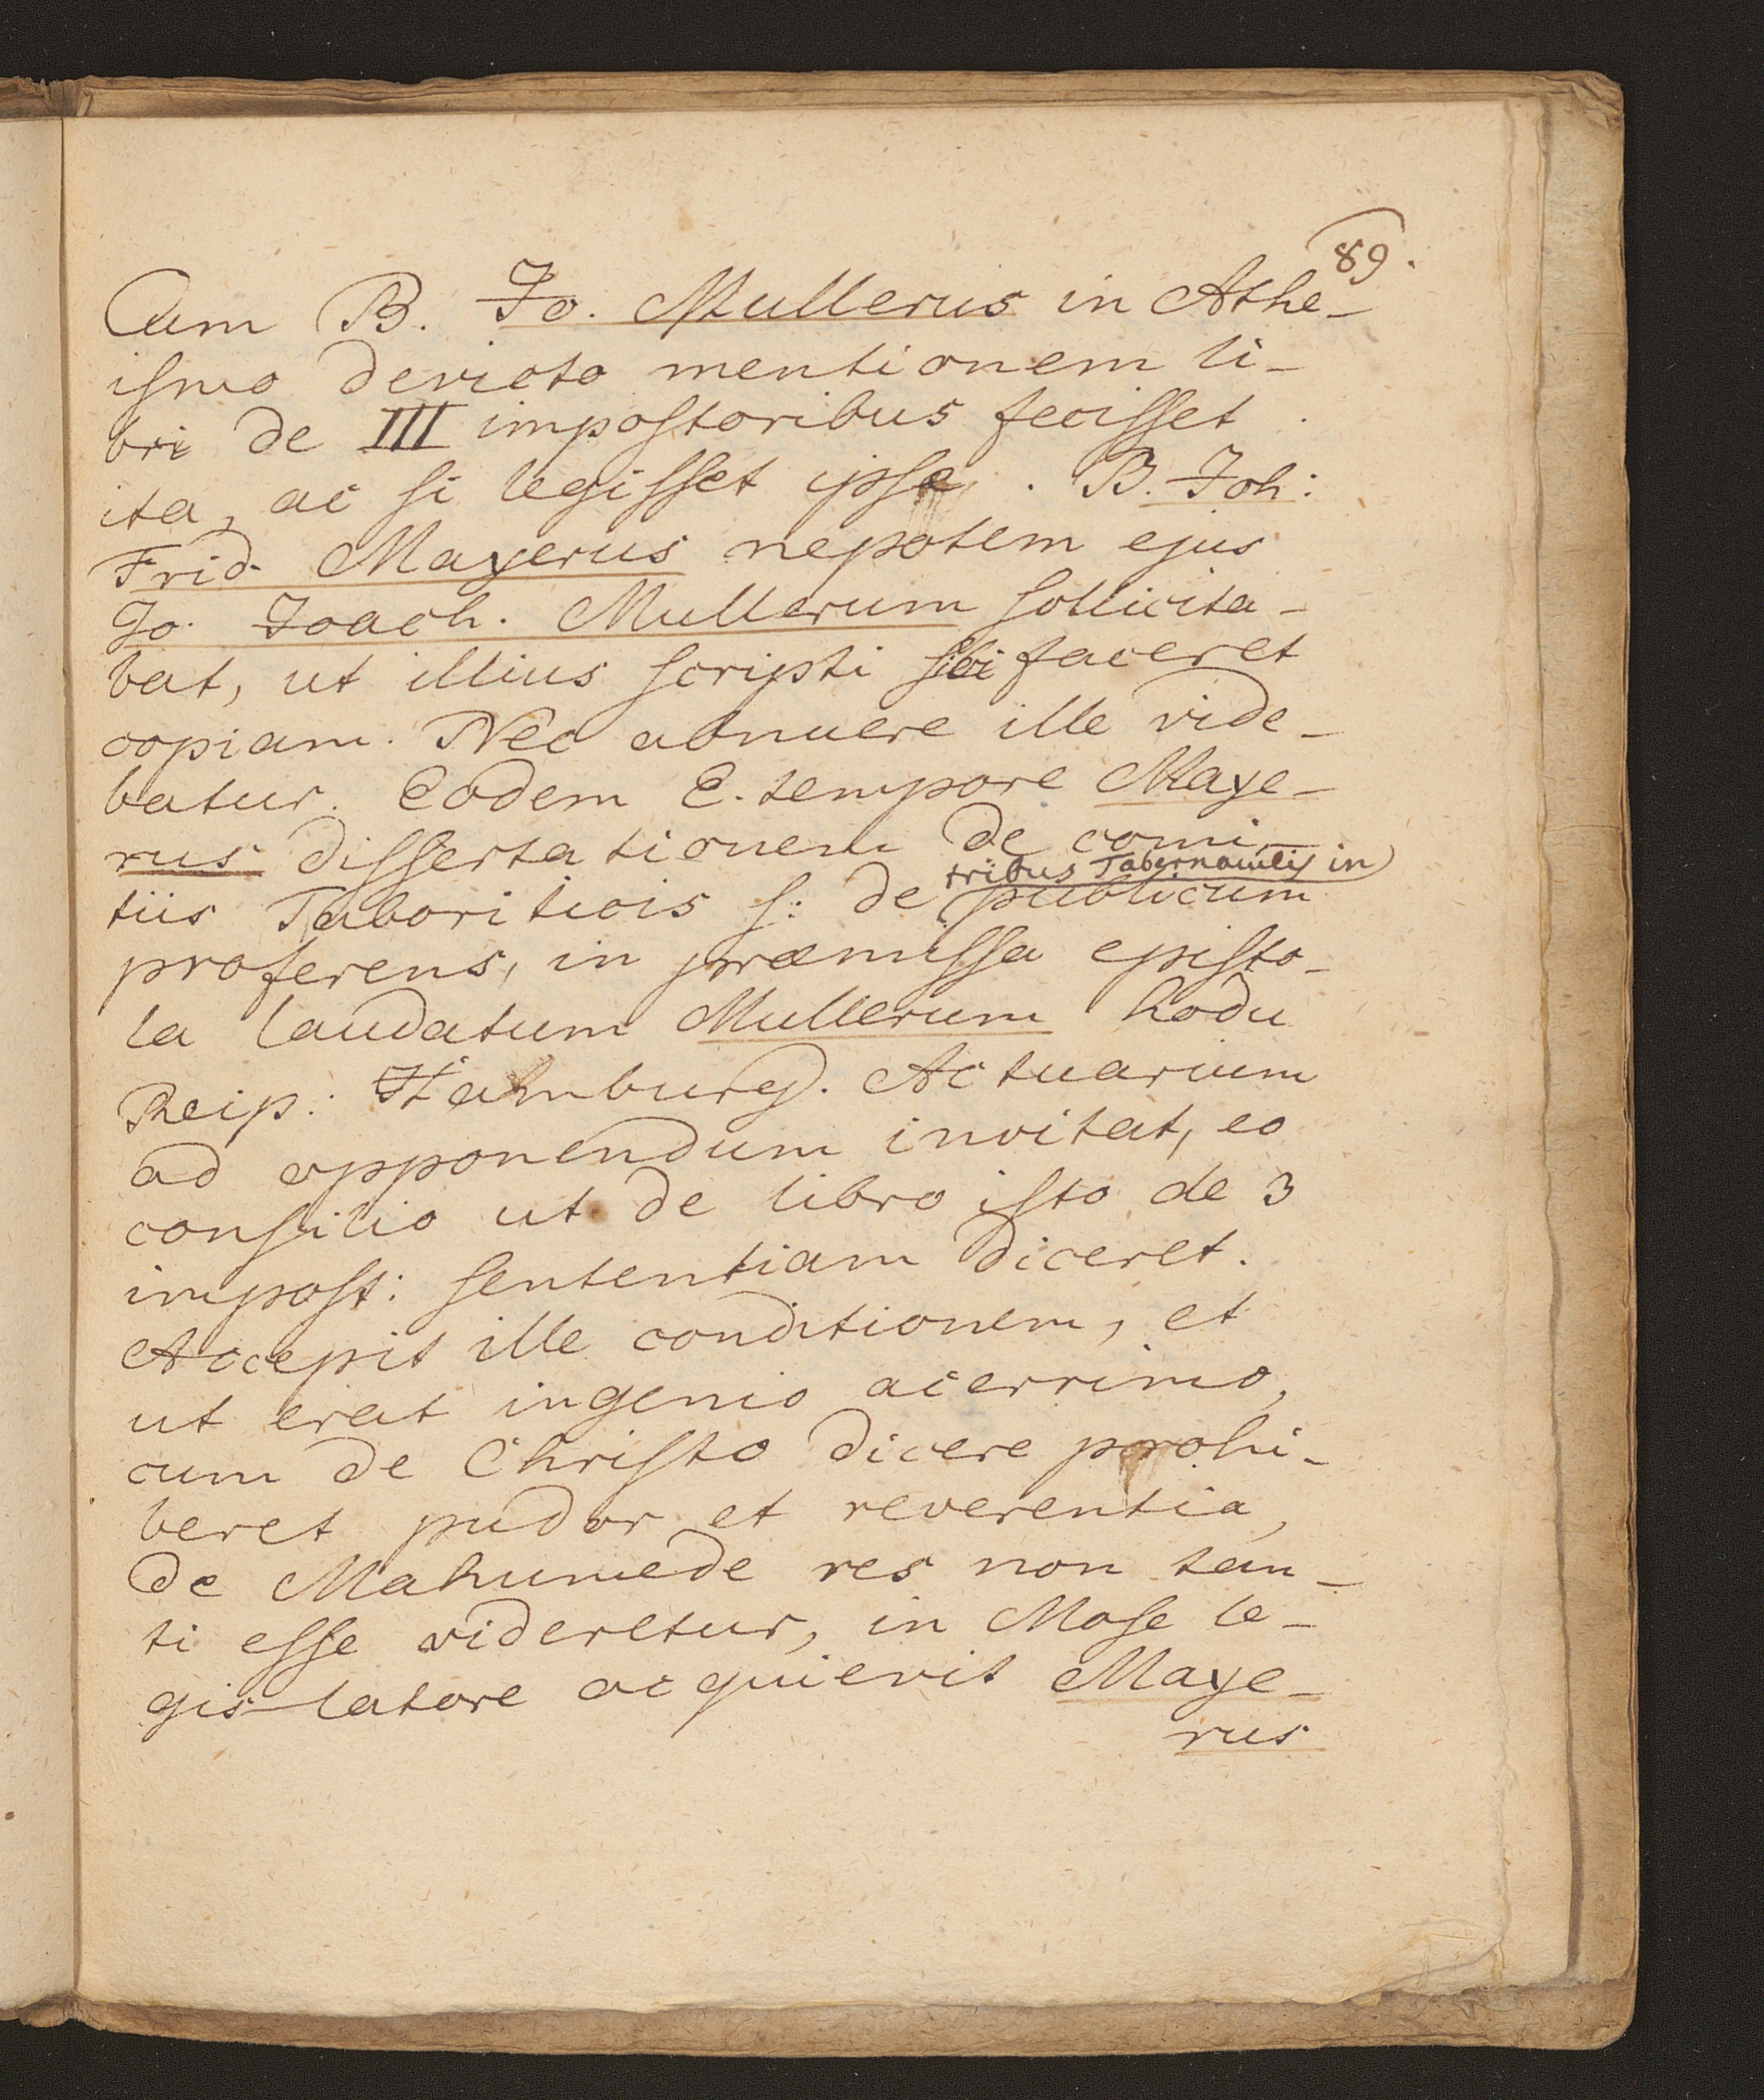 89.
Cum B. Jo. Mullerus in Athe-
iſmo devicto mentionem li-
bri de III impoſtoribus feciſſet
ita, ac ſi legiſſet ipſe. B. Joh:
Frid. Mayerus nepotem ejus
Jo. Joach. Mullerum ſollicita-
bat, ut illius ſcripti ſibi faceret
copiam. Nec abnuere ille vide-
batur. Eodem E. tempore Maye-
rus diſſertationem de comi-
tribus Tabernaculis in
tiis Taboriticis ſ: de publicum
proferens, in præmiſſa epiſto-
la laudatum Mullerum hodu
Reip: Hamburg. Actuarium
ad opponendum invitat, eo
conſilio ut de libro iſto de 3
impoſt: ſententiam diceret.
Accepit ille conditionem, et
ut erat ingenio acerrimo,
cum de Chriſto dicere prohi-
beret pudor et reverentia,
de Mahumede res non tan-
ti eſſe videretur, in Moſe le-
gis-latore acquievit Maye-
rus